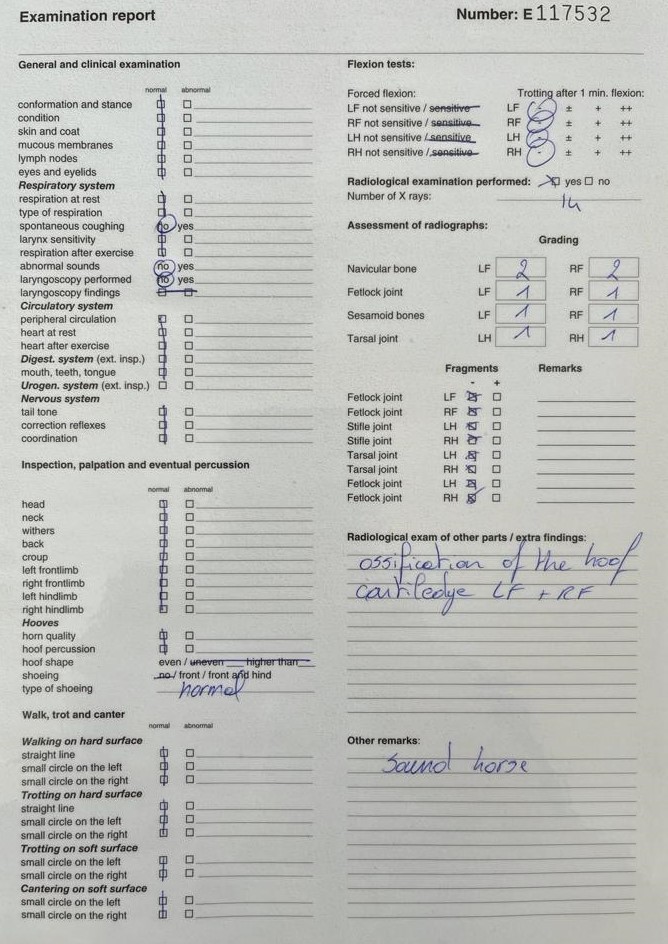 Examination report
Number: E 117532
General and clinical examination
normal abnormal
conformation and stance
condition
skin and coat
mucous membranes
lymph nodes
eyes and eyelids
Respiratory system
respiration at rest
type of respiration
spontaneous coughing no yes
larynx sensitivity
respiration after exercise
abnormal sounds no yes
laryngoscopy performed no yes
laryngoscopy findings
Circulatory system
peripheral circulation
heart at rest
heart after exercise
Digest. system (ext. insp.)
mouth, teeth, tongue
Urogen. system (ext. insp.)
Nervous system
tail tone
correction reflexes
coordination
Inspection, palpation and eventual percussion
normal abnormal
head
neck
withers
back
croup
left frontlimb
right frontlimb
left hindlimb
right hindlimb
Hooves
horn quality
hoof percussion
hoof shape even / uneven higher than
shoeing no / front / front and hind
type of shoeing normal
Walk, trot and canter
normal abnormal
Walking on hard surface
straight line
small circle on the left
small circle on the right
Trotting on hard surface
straight line
small circle on the left
small circle on the right
Trotting on soft surface
small circle on the left
small circle on the right
Cantering on soft surface
small circle on the left
small circle on the right
Flexion tests:
Forced flexion: Trotting after 1 min. flexion:
LF not sensitive / sensitive LF - ± + ++
RF not sensitive / sensitive RF - ± + ++
LH not sensitive / sensitive LH - ± + ++
RH not sensitive / sensitive RH - ± + ++
Radiological examination performed: yes no
Number of X rays: 14
Assessment of radiographs:
Grading
Navicular bone LF 2 RF 2
Fetlock joint LF 1 RF 1
Sesamoid bones LF 1 RF 1
Tarsal joint LH 1 RH 1
Fragments Remarks
- +
Fetlock joint LF
Fetlock joint RF
Stifle joint LH
Stifle joint RH
Tarsal joint LH
Tarsal joint RH
Fetlock joint LH
Fetlock joint RH
Radiological exam of other parts / extra findings:
ossification of the hoof
cartiledge LF + RF
Other remarks:
Sound horse